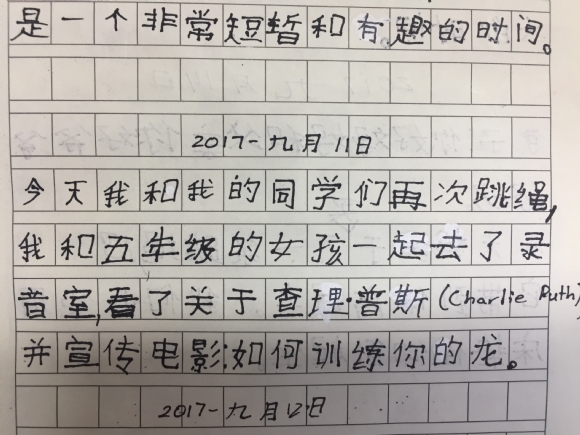 是一个非常短暂和有趣的时间。
2017-九月11日
今天我和我的同学们再次跳绳,
我和五年级的女孩一起去了录
音室,看了关于查理·普斯(Charlie Puth)
并宣传电影:如何训练你的龙。
2017-九月12日